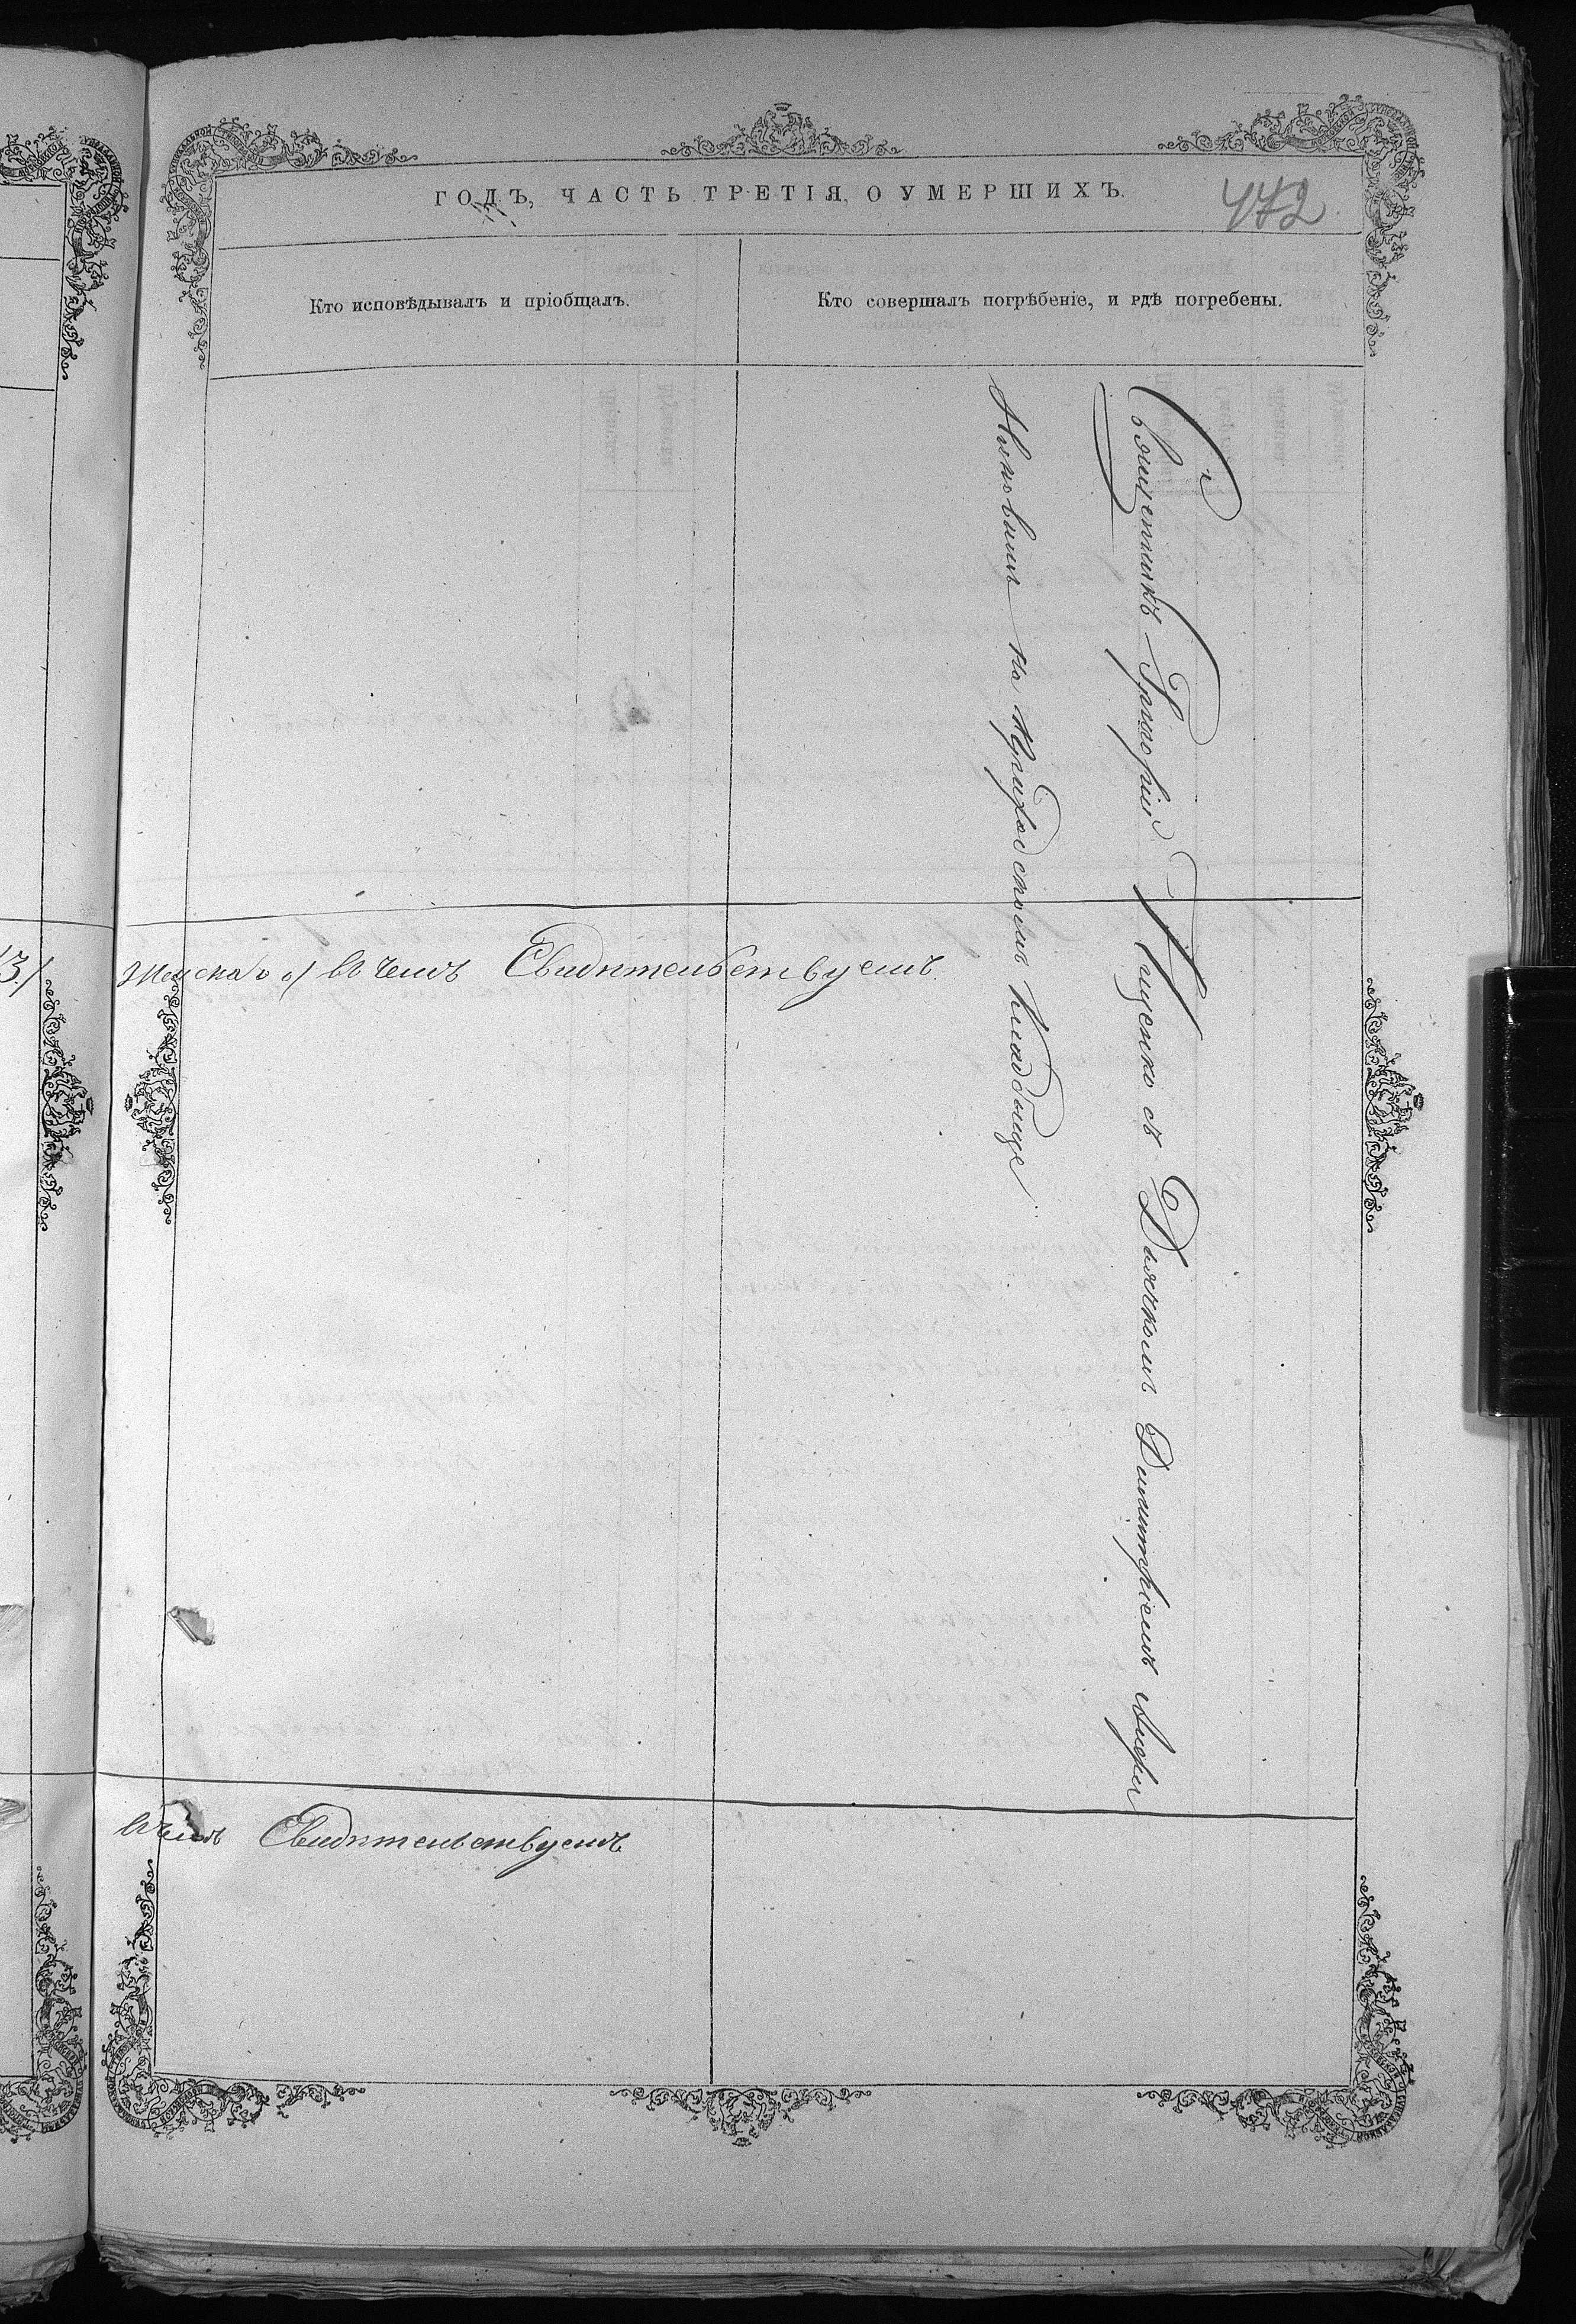 ГОДЪ, ЧАСТЬ ТРЕТІЯ, О УМЕРШИХЪ.
472
Кто исповѣдывалъ и пріобщалъ.
Кто совершалъ погрѣбеніе, и гдѣ погребены.
Священникъ Григорій Гуценко съ Дьячкомъ Димитріемъ
на приходскомъ кладбище
Женска въ чемъ Свидѣтельствуемъ
въ чемъ Свидѣтельствуемъ